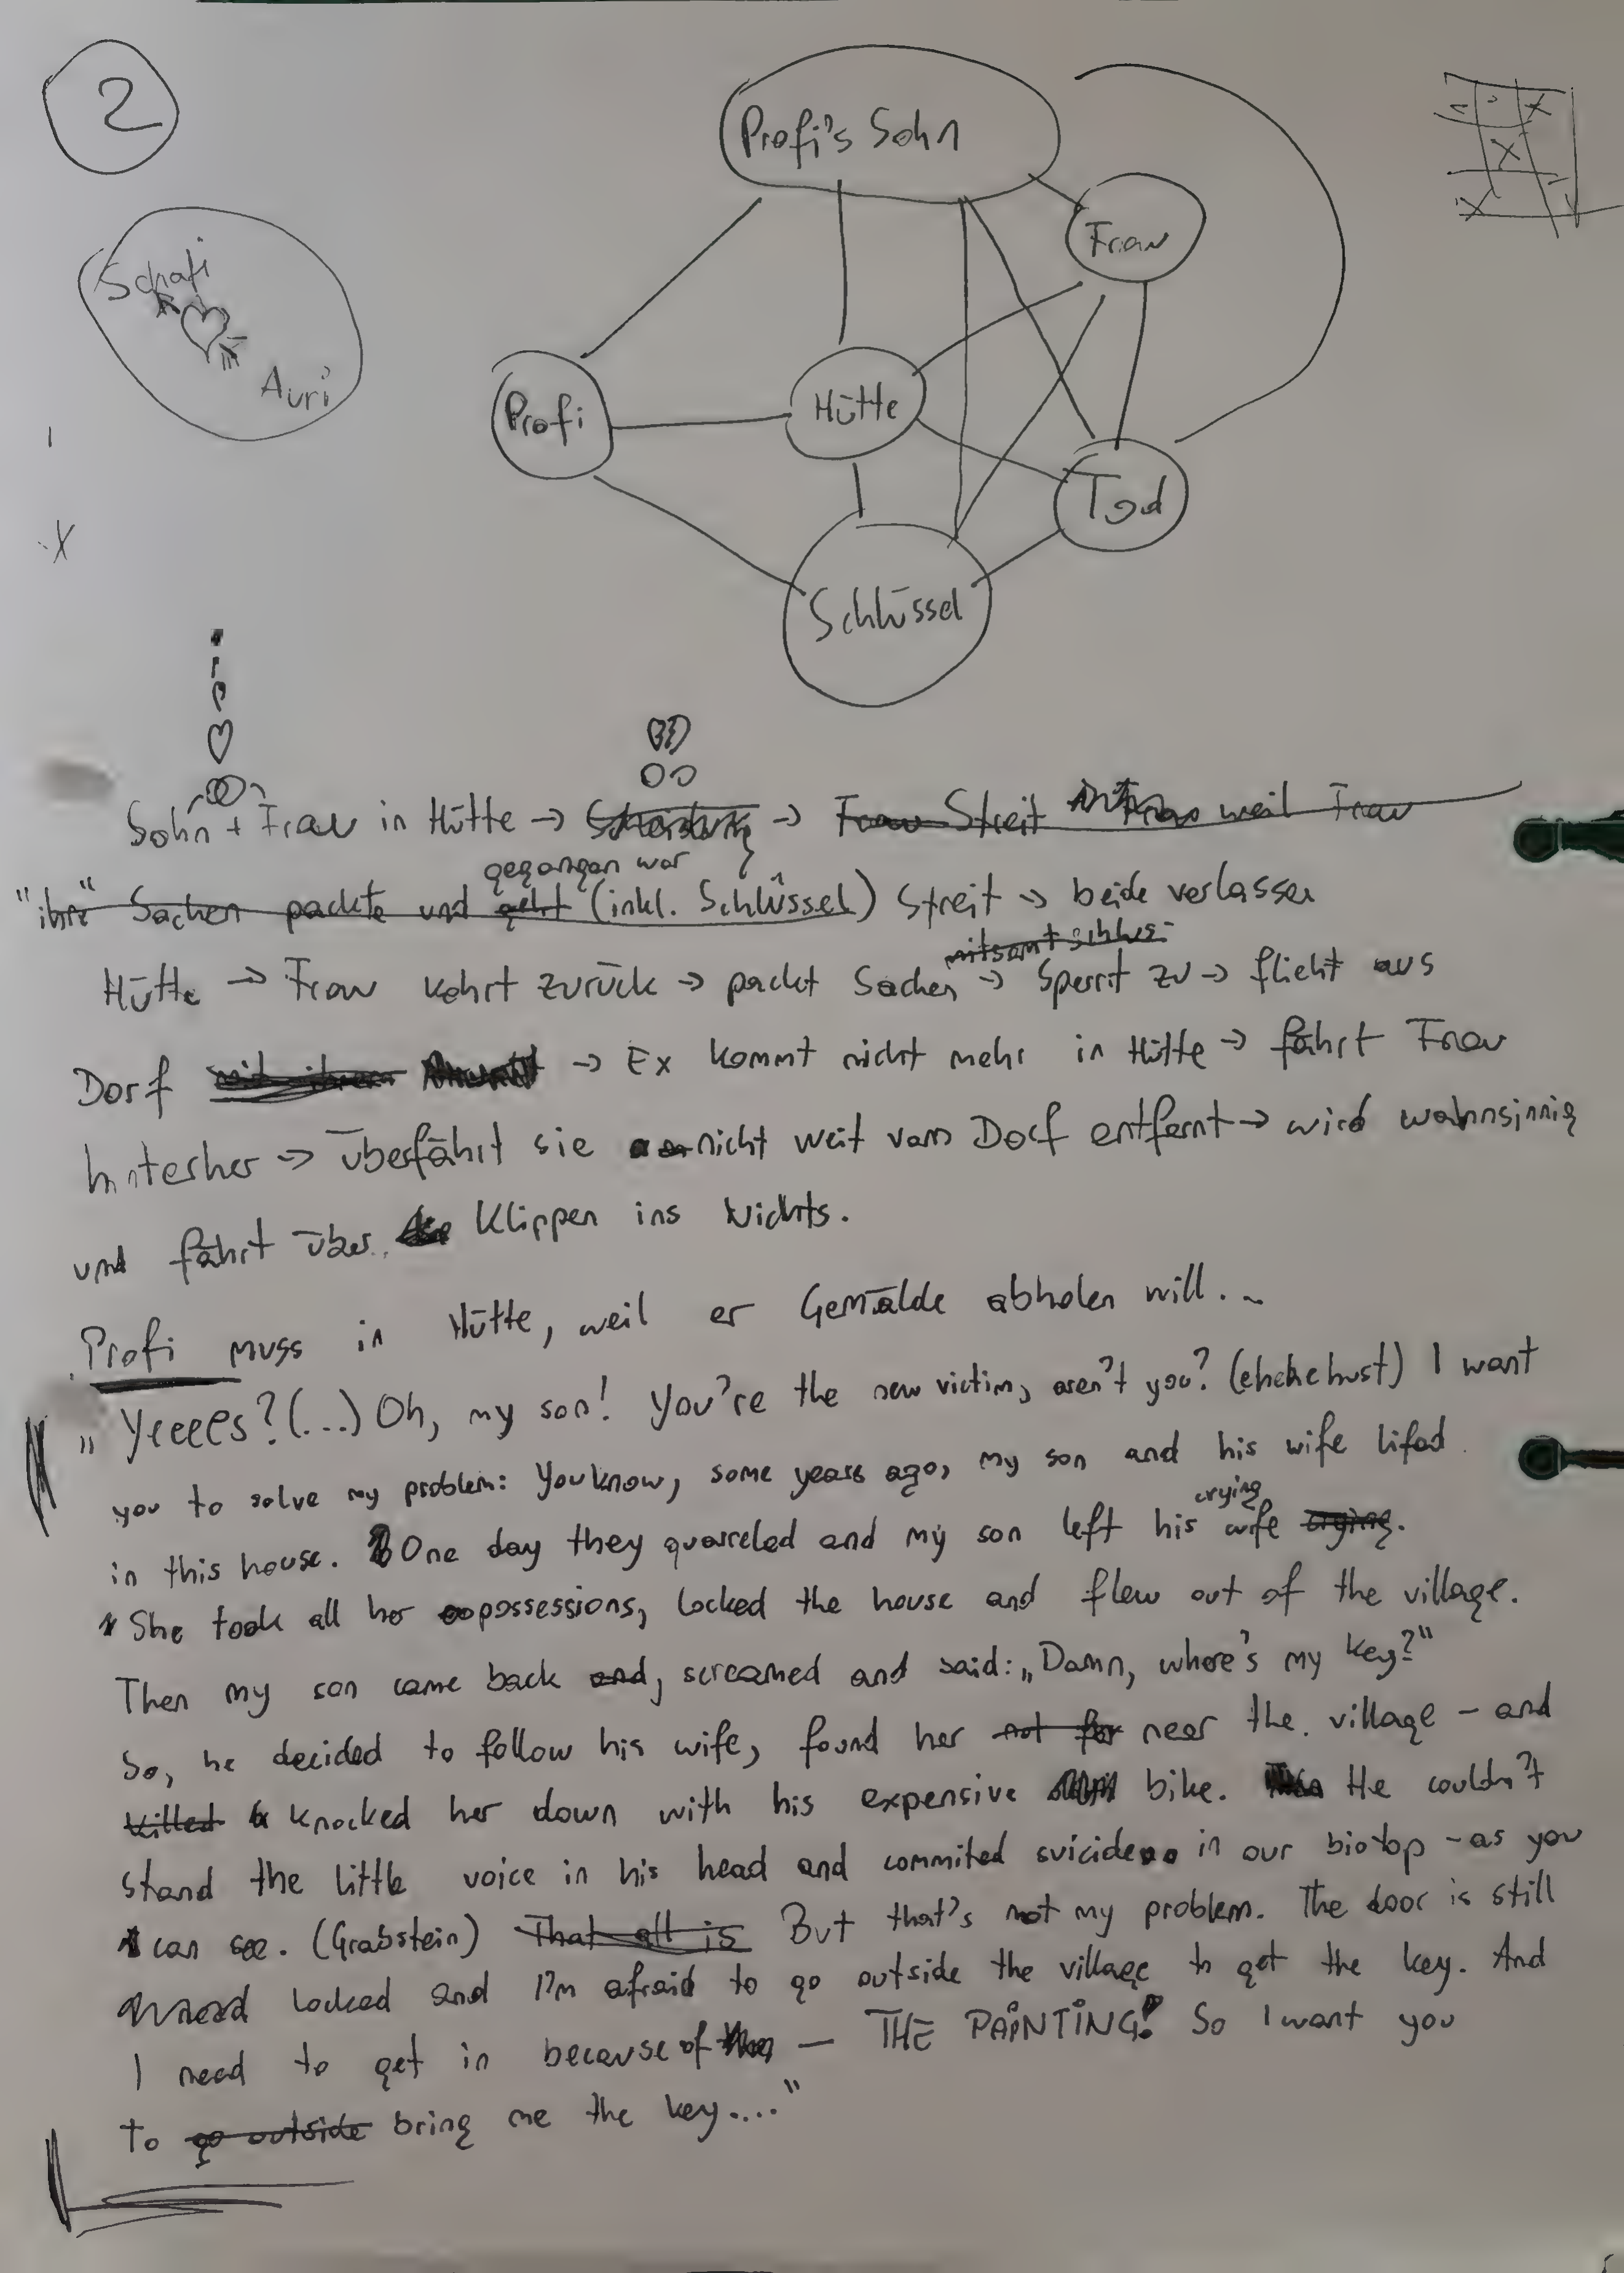 2
Profi's Sohn
Frau
Schafi
Auri
Profi
Hütte
Tod
Schlüssel
Sohn + Frau in Hütte → Scheidung → Frau Streit weil Frau
gegangen war
"ihre" Sachen packte und geht (inkl. Schlüssel) Streit → beide verlassen
mitsamt Schlüs-
Hütte → Frau kehrt zurück → packt Sachen → Sperrt zu → flieht aus
Dorf mit ihrem → Ex kommt nicht mehr in Hütte → fährt Frau
hinterher → überfährt sie nicht weit vom Dorf entfernt → wird wahnsinnig
und fährt über die Klippen ins Nichts.
Profi muss in Hütte, weil er Gemälde abholen will...
„Yeeees? (...) Oh, my son! You're the new victim, aren't you? (ehehehust) I want
you to solve my problem: You know, some years ago, my son and his wife lifed
crying
in this house. One day they quarreled and my son left his wife crying.
She took all her possessions, locked the house and flew out of the village.
Then my son came back and, screamed and said: „Damn, where's my key?"
So, he decided to follow his wife, found her not far near the village - and
killed knocked her down with his expensive bike. He couldn't
stand the little voice in his head and commited suicide in our biotop - as you
can see. (Grabstein) That all is But that's not my problem. The door is still
locked and I'm afraid to go outside the village to get the key. And
I need to get in because of — THE PAiNTiNG! So I want you
to go outside bring me the key...."